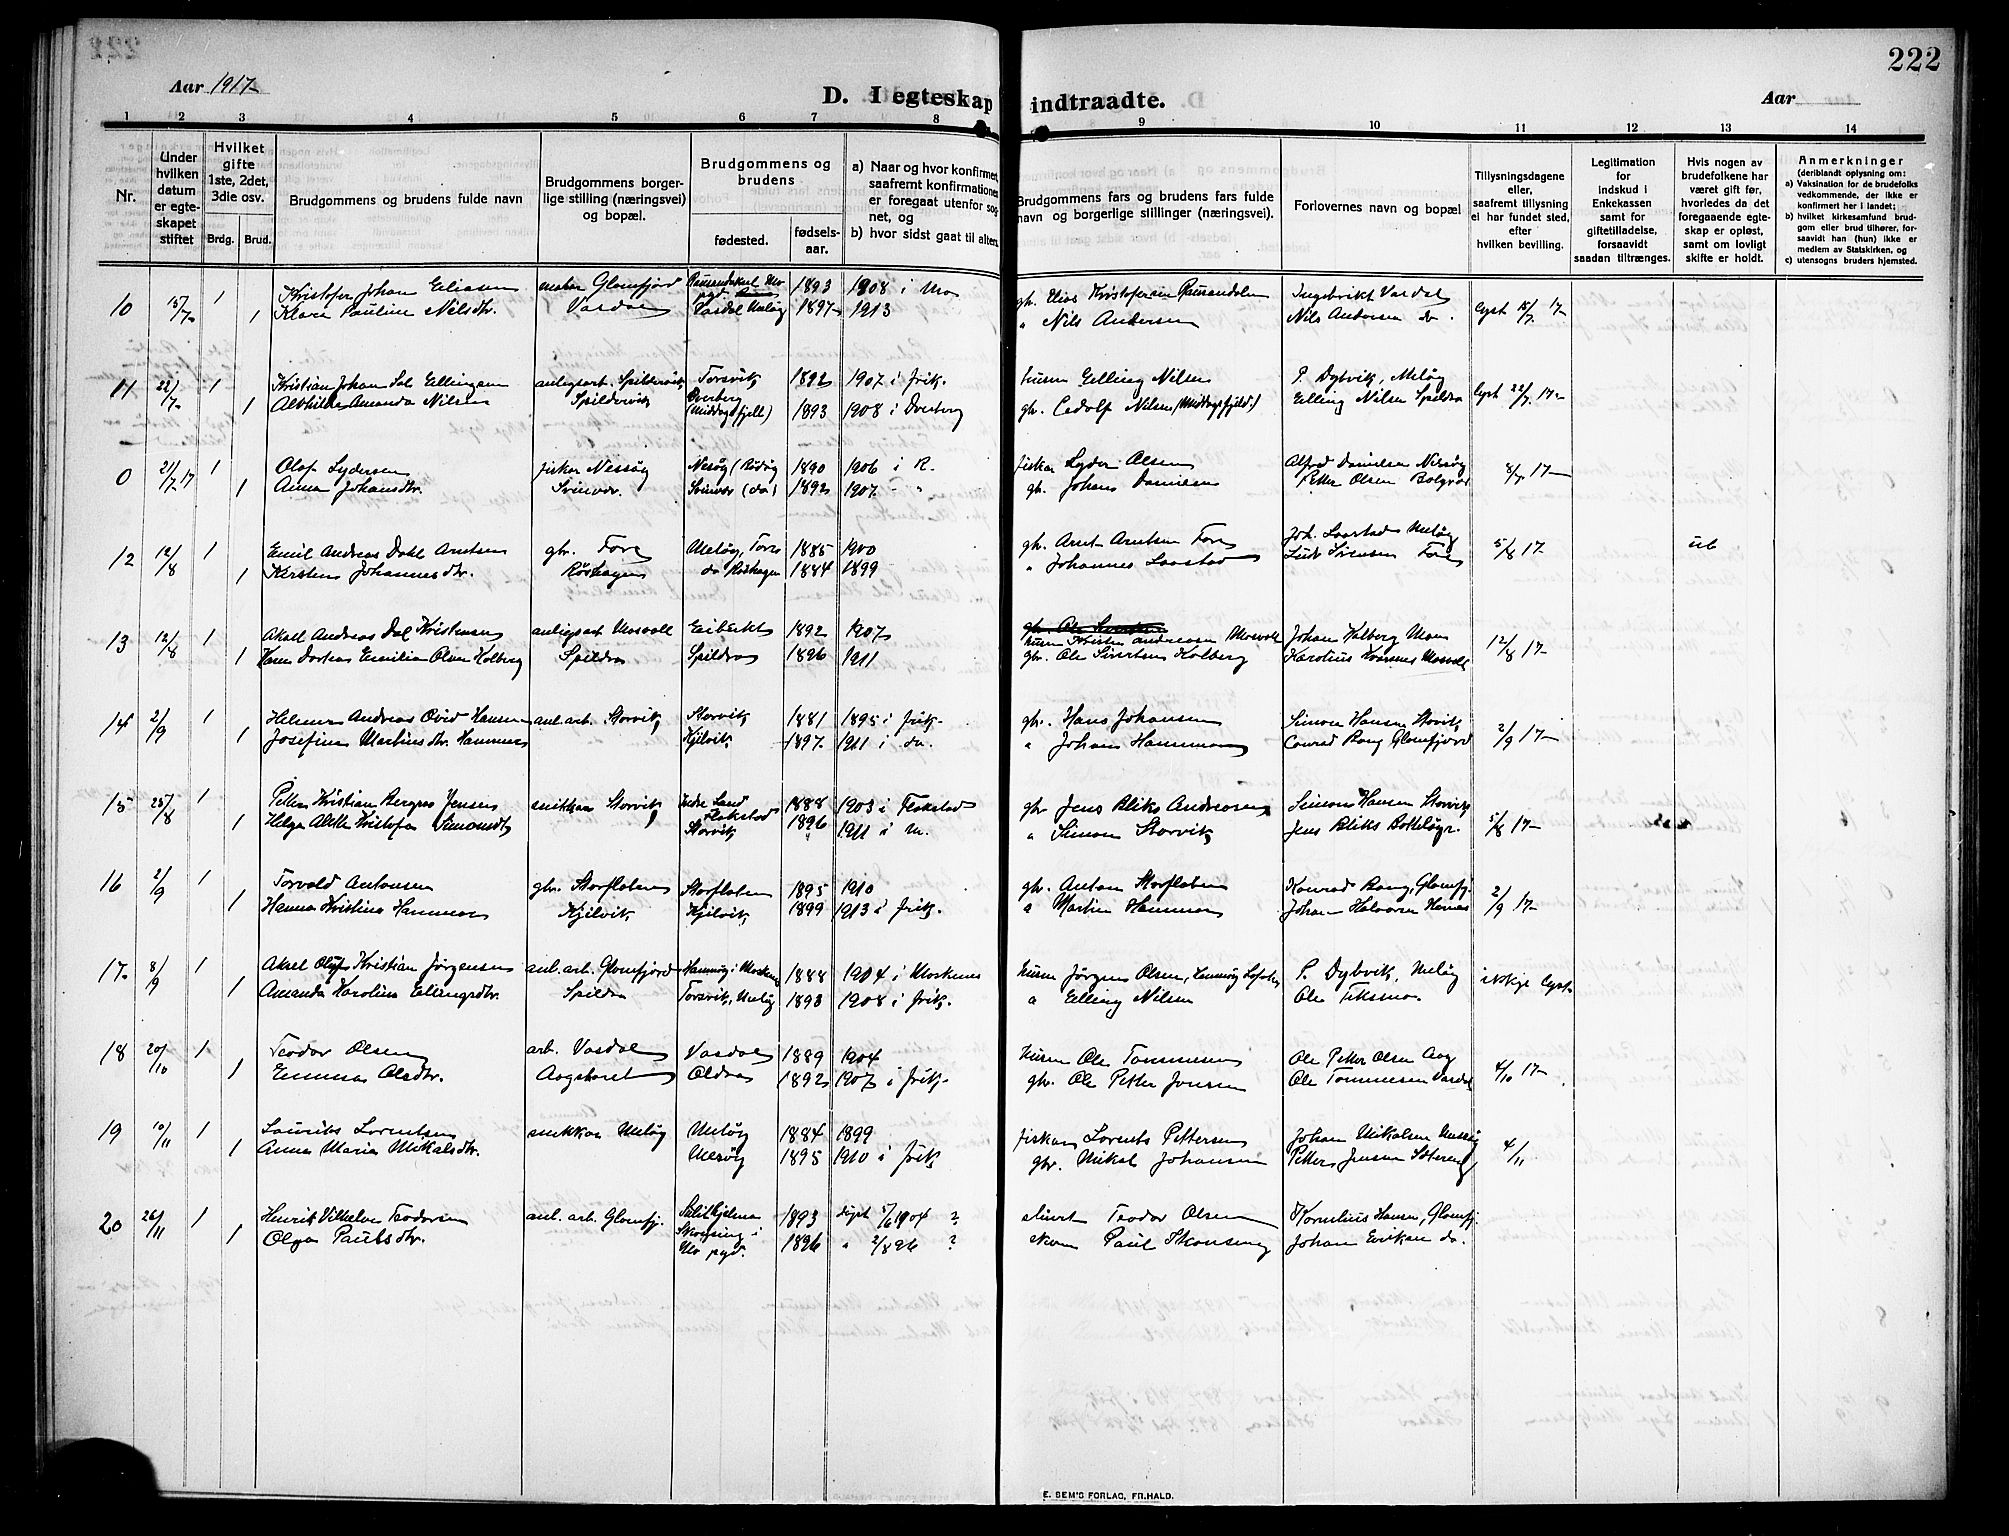 222
Aar 1917
D. I egteskap indtraadte.
Aar
1 2 3 4 5 6 7 8 9 10 11 12 13 14
Nr.
Under hvilken datum er egteskapet stiftet
Hvilket gifte 1ste, 2det, 3die osv.
Brdg. Brud.
Brudgommens og brudens fulde navn
Brudgommens borgerlige stilling (næringsvei) og bopæl.
Brudgommens og brudens
fødested.
fødselsaar.
a) Naar og hvor konfirmert, saafremt konfirmationen er foregaat utenfor sognet, og
b) hvor sidst gaat til alters.
Brudgommens fars og brudens fars fulde navn og borgerlige stillinger (næringsvei).
Forlovernes navn og bopæl
Tillysningsdagene eller, saafremt tillysning ei har fundet sted, efter hvilken bevilling.
Legitimation for indskud i Enkekassen samt for giftetilladelse, forsaavidt saadan tiltrænges.
Hvis nogen av brudefolkene har været gift før, hvorledes da det foregaaende egteskap er opløst, samt om lovligt skifte er holdt.
Anmerkninger
(deriblandt oplysning om:
a) Vaksination for de brudefolks vedkommende, der ikke er konfirmert her i landet;
b) hvilket kirkesamfund brudgom eller brud tilhører, forsaavidt han (hun) ikke er medlem av Statskirken, og
c) utensogns bruders hjemsted.
10 15/7 1 Kristofer Johan Eliasen Glomfjord 1893 1908 i Mo gbr. Elias Kristofersen Ingebrikt Vasdal lyst 15/7 17
1 Klara Pauline Nilsdtr. Vasdal Vasdal Meløy 1897 1913 " Nils Andersen Nils Andersen do.
11 22/7 1 Kristian Johan Ellingsen anlegsarb. Spildervik Torsvik 1892 1907 i Frik. husm Elling Nilsen P. Dybvik, Meløy lyst 22/7 17
1 Amanda Nilsen Spildervik (Middagsfjell) 1893 1908 i gbr. Nilsen (Middagsfjeld) Elling Nilsen Spildra
0 21/7 17 1 Olaf Lydersen fisker Nessøy Nesøy (Rødøy 1890 1906 i R. fisker Lyder Olsen Alfred Danielsen Nessøy 8/7 17
1 Anna Johansdtr. Svinvær Svinvær (do) 1892 1907 " gbr. Johans Danielsen Petter Olsen Bolgvær
12 12/8 1 Emil Andreas Dahl Arntsen gbr. Fore Meløy, Fore 1885 1900 gbr. Arnt Arntsen Fore Joh. Saastad Meløy 5/8 17 ub
1 Kirsten Johannesdtr. Røshagen do Røshagen 1884 1899 " Johannes Saastad Sørensen Fore
13 12/8 1 Aksel Andreas Dal Kristensen anlegsarb Mosvoll 1892 1907 husm Kristen Andreasen Mosvoll Johan Kolberg 12/8 17
1 Dortea Emilie Olsen Kolberg Spildra Spildra 1896 1911 gbr. Ole Sivertsen Kolberg Karolius Mosvoll
14 2/9 1 Helmer Andreas Ovid Hansen anl. arb. Storvik Storvik 1881 1895 i Frik. gbr. Hans Johansen Simon Hansen Storvik 2/9 17
1 Josefine Martinsdtr. Hammer Kjilvik 1897 1911 i do. " Johans Hammer Conrad Bang Glomfjord
15 25/8 1 Petter Kristian Bergres Jensen snikkar Storvik Flakstad 1888 1903 i Flakstad gbr Jens Bliks Andreasen Simon Hansen Storvik 5/8 17
1 Helga Kristofa Simonsdtr Storvik 1896 1911 i M. " Simon Storvik Jens Bliks
16 2/9 1 Torvald Antonsen gbr. Storflaten Storflaten 1895 1910 gbr. Anton Storflaten Konrad Bang, Glomfj. 2/9 17
1 Hanna Kristine Hammer Kjilvik Kjilvik 1899 1913 i Frik. " Martin Hammer Johan Halvorsen
17 8/9 1 Aksel Oluf Kristian Jørgensen anl. arb. Glomfjord 1888 1904 i Moskenes husm Jørgen Olsen, P. Dybvik, Meløy ikkje lyst
1 Amanda Karoline Ellingsdtr. Spildra Torsvik, Meløy 1893 1908 i Frik. " Elling Nilsen Ole Teksmo
18 20/10 1 Teodor Olsen arb. Vasdal Vasdal 1889 1904 husm Ole Tommesen Ole Petter Olsen Aag 4/10 17
1 Emma Olsdtr. Aagskaret Oldra 1892 1907 i Frik. gbr. Ole Petter Jensen Ole Tommesen Vasdal
19 10/11 1 Laurits Lorentsen snikkar Meløy Meløy 1884 1899 fiskar Lorents Pettersen Johan Mikalsen Messøy 4/11
1 Anna Maria Mikalsdtr. Meløy 1895 1910 i Frik. gbr. Mikal Johansen Petter Jensen
20 26/11 1 Henrik Vilhelm Teodorsen anl. arb. Glomfj. Sulitjelma 1893 døpt 5/6 1904 ? Teodor Olsen Kornelius Hansen, Glomfj.
1 Olga Paulsdtr. Skonseng i Mo pgd. 1896 " 2/8 96 ? Paul Skonseng Johan Eriksen do.
E. SEM'S FORLAG, FR.HALD.